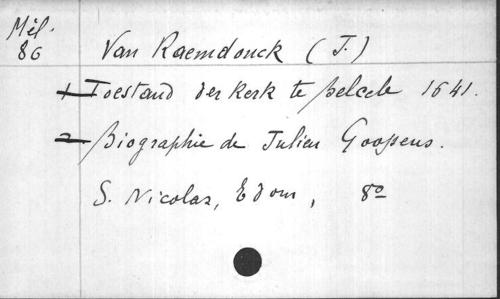 Mél.
86
Van Raemdonck (J.)
1 Toestand der Kerk te belcele 1641.
2 Biographie de Julien Goossens.
S. Nicolas, Edom, 8º